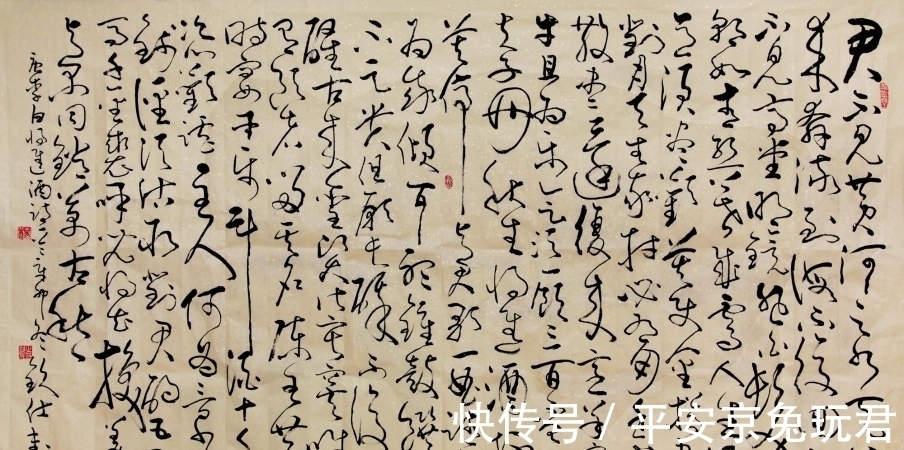 君不见黄河之水天
来奔流到海不复
不见高堂明镜悲白发
朝如青丝暮成雪人生
意须尽欢莫使金樽
对月天生我材必有用千
散尽还复来烹羊
牛且为乐会须一饮三百
夫子丹丘生将进酒杯
莫停与君歌一曲
为我倾耳听钟鼓馔
不足贵但愿长醉不复
醒古来圣贤皆寂寞惟
有饮者留其名陈王昔
时宴平乐斗酒十千
恣欢谑主人何为言少
钱径须沽取对君酌五
马千金裘呼儿将出换美
与尔同销万古愁
唐李白将进酒诗
快传号 / 平安京兔玩君